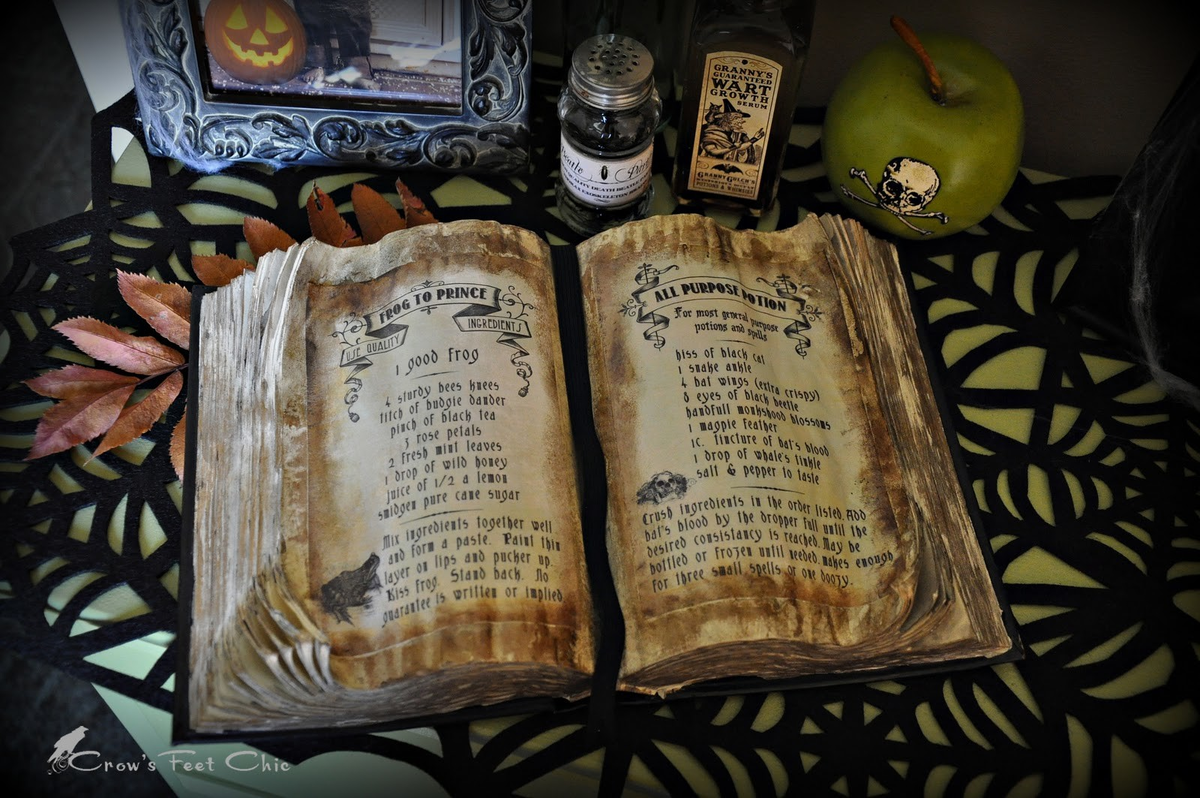 GRANNY'S
GUARANTEED
WART
GROWTH
SERUM
FROG TO PRINCE
USE QUALITY
INGREDIENTS
1 good frog
4 sturdy bees knees
titch of budgie dander
pinch of black tea
3 rose petals
2 fresh mint leaves
1 drop of wild honey
juice of 1/2 a lemon
smidgen pure cane sugar
Mix ingredients together well
and form a paste. Paint thin
layer on lips and pucker up.
Kiss frog. Stand back. No
guarantee is written or implied
ALL PURPOSE POTION
For most general purpose
potions and spells
hiss of black cat
1 snake ankle
4 bat wings (extra crispy)
8 eyes of black beetle
handfull monkshood blossoms
1 magpie feather
1c. tincture of bat's blood
1 drop of whale's tinkle
salt & pepper to taste
Crush ingredients in the order listed. Add
bat's blood by the dropper full until the
desired consistancy is reached. May be
bottled or frozen until needed. makes enough
for three small spells or one doozy.
Crow's Feet Chic